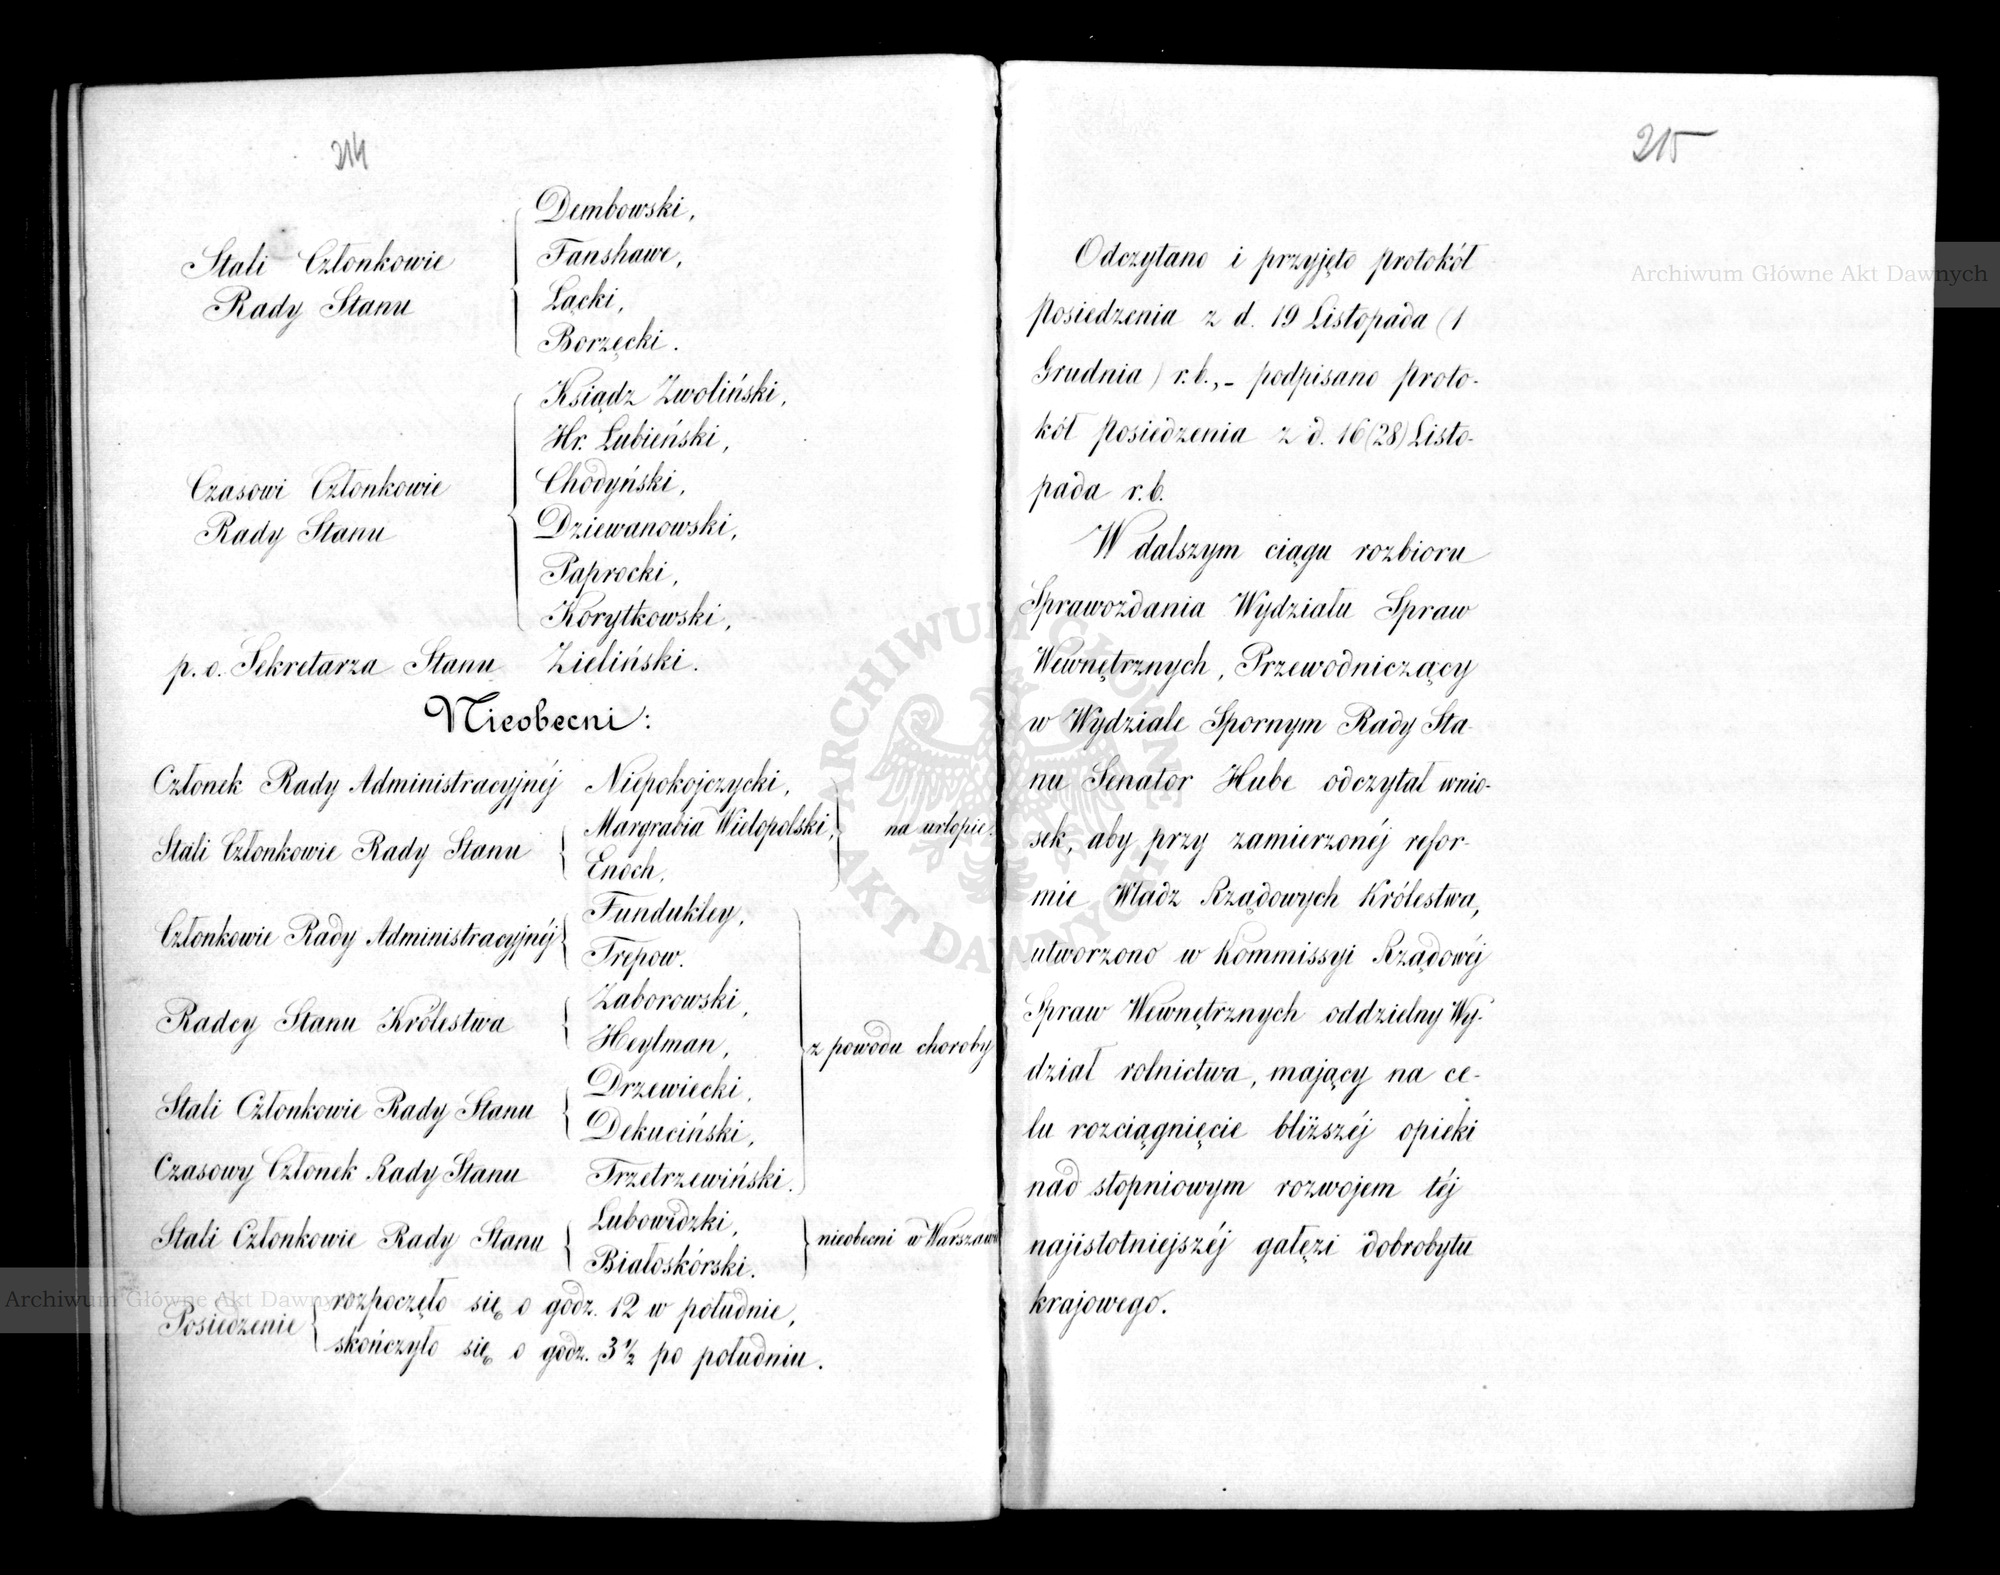 214
Stali Członkowie
Rady Stanu
Dembowski,
Fanshawe,
Łącki,
Borzęcki.
Czasowi Członkowie
Rady Stanu
Ksiądz Zwoliński,
Hr. Łubieński,
Chodyński,
Dziewanowski,
Paprocki,
Korytkowski,
p. o. Sekretarza Stanu Zieliński.
Nieobecni:
Członek Rady Administracyjnéj Niepokojczycki,
Stali Członkowie Rady Stanu
Margrabia Wielopolski,
Enoch,
na urlopie.
Członkowie Rady Administracyjnéj
Fundukley,
Trepow.
Radcy Stanu Królestwa
Zaborowski,
Heylman,
Stali Członkowie Rady Stanu
Drzewiecki,
Dekuciński,
Czasowy Członek Rady Stanu Trzetrzewiński.
z powodu choroby
Stali Członkowie Rady Stanu
Lubowidzki,
Białoskórski.
nieobecni w Warszawie
Posiedzenie
rozpoczęło się o godz. 12 w południe,
skończyło się o godz. 3 1/2 po południu.
215
Odczytano i przyjęto protokół
posiedzenia z d. 19 Listopada (1
Grudnia) r.b.,- podpisano proto-
kół posiedzenia z d. 16 (28) Listo-
pada r.b.
W dalszym ciągu rozbioru
Sprawozdania Wydziału Spraw
Wewnętrznych, Przewodniczący
w Wydziale Spornym Rady Sta-
nu Senator Hube odczytał wnio-
sek, aby przy zamierzonéj refor-
mie Władz Rządowych Królestwa,
utworzono w Kommissyi Rządowéj
Spraw Wewnętrznych oddzielny Wy-
dział rolnictwa, mający na ce-
lu rozciągnięcie bliższéj opieki
nad stopniowym rozwojem téj
najistotniejszéj gałęzi dobrobytu
krajowego.
Archiwum Główne Akt Dawnych
Archiwum Główne Akt Dawnych
ARCHIWUM GŁÓWNE AKT DAWNYCH